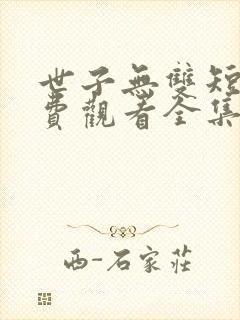 世子無雙短
費觀看全集
西-石家莊